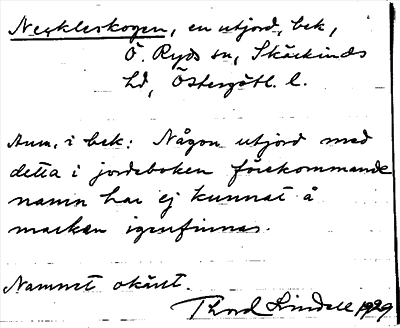 Neckleskogen, en utjord, bek,
Ö. Ryds sn, Skärkinds
hd, Östergötl. l.
Anm. i bek: Någon utjord med
detta i jordeboken förekommande
namn har ej kunnat å
marken igenfinnas.
Namnet okänt.
Thord Lindell 1929